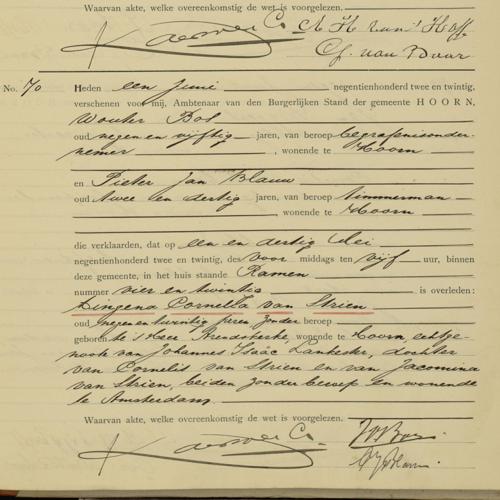 Waarvan akte, welke overeenkomstig de wet is voorgelezen.
A H van 't Hoff
No. 70 Heden een Juni negentienhonderd twee en twintig,
verschenen voor mij, Ambtenaar van den Burgerlijken Stand der gemeente HOORN,
Wouter Bos
oud negen en vijftig jaren, van beroep begrafenisonder-
nemer, wonende te Hoorn
en Pieter Jan Blauw
oud twee en dertig jaren, van beroep timmerman
, wonende te Hoorn
die verklaarden, dat op een en dertig Mei
negentienhonderd twee en twintig, des voor middags ten vijf uur, binnen
deze gemeente, in het huis staande Ramen
nummer vier en twintig is overleden:
Dingena Cornelia van Strien
oud negen en twintig jaren zonder beroep
geboren te 's Heer Arendskerke, wonende te Hoorn, echtge-
noote van Johannes Isaäc Lankester, dochter
van Cornelis van Strien en van Jacomina
van Strien, beiden zonder beroep en wonende
te Amsterdam.
Waarvan akte, welke overeenkomstig de wet is voorgelezen.